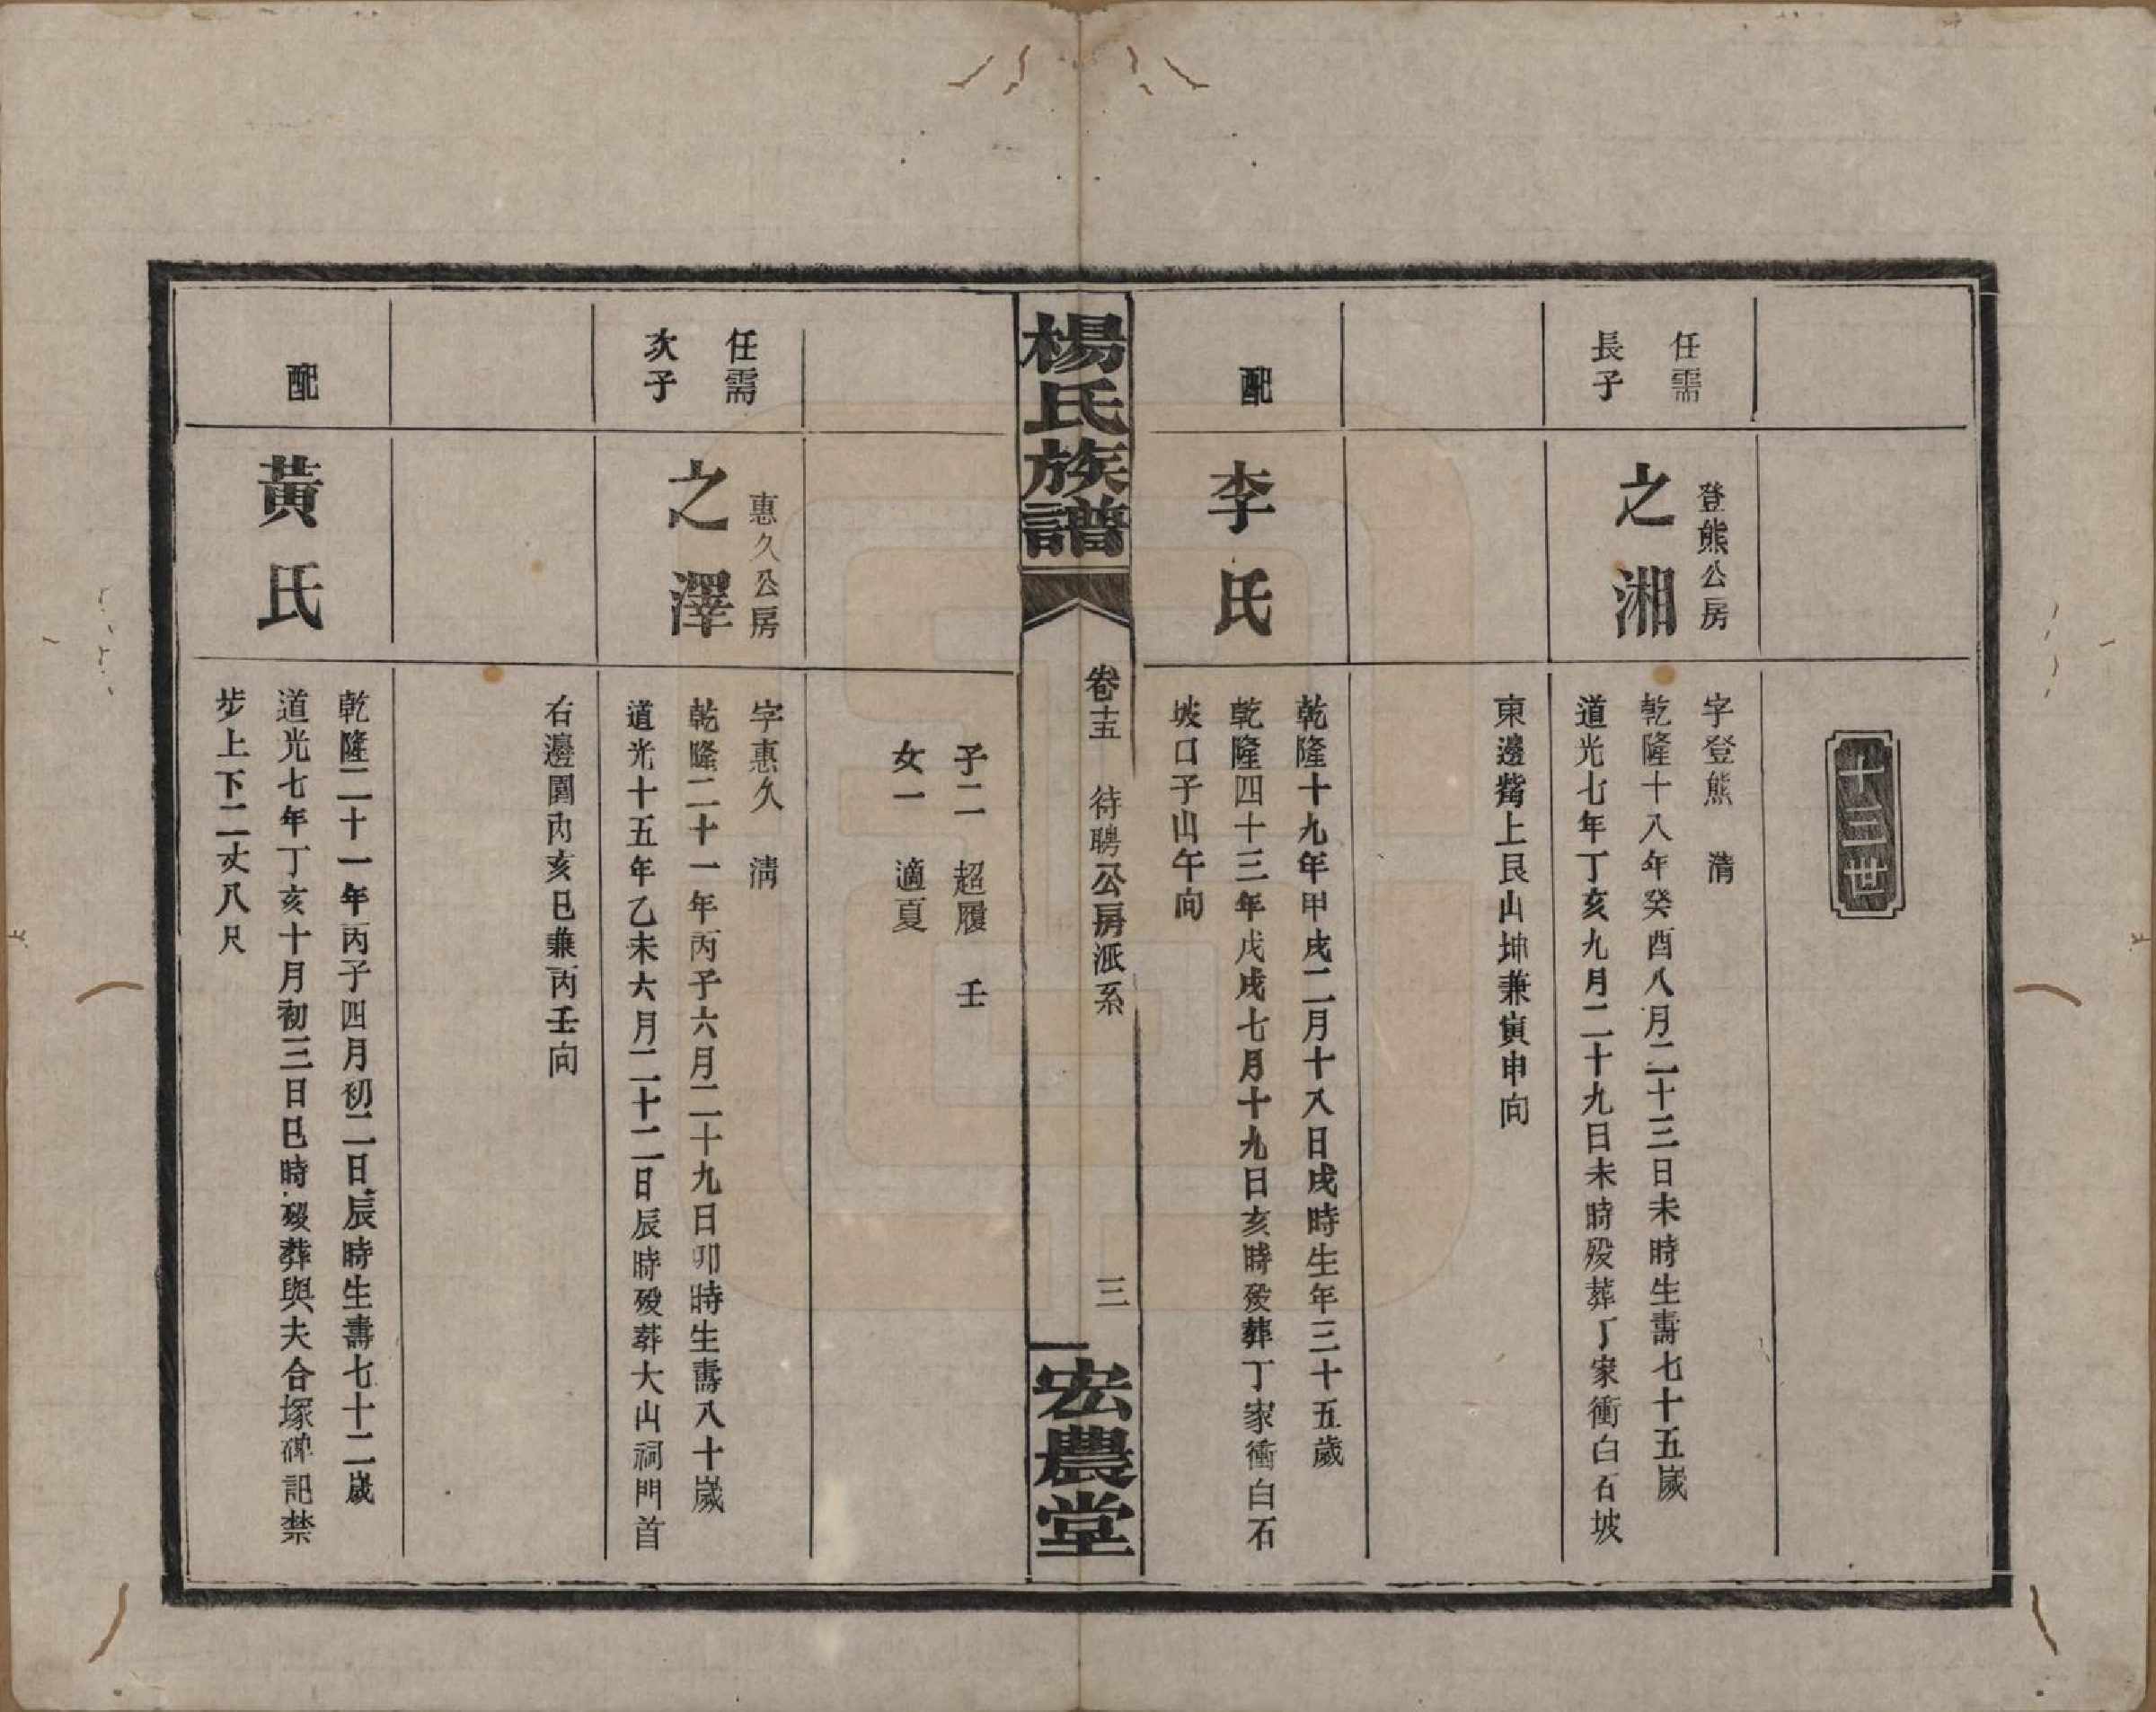 十三世
任需
長子
登熊公房
之湘
字登熊　清
乾隆十八年癸酉八月二十三日未時生壽七十五歲
道光七年丁亥九月二十九日未時殁葬丁家衝白石坡
東邊觜上艮山坤兼寅申向
配
李氏
乾隆十九年甲戌二月十八日戌時生年三十五歲
乾隆四十三年戊戌七月十九日亥時殁葬丁家衝白石
坡口子山午向
楊氏族譜
卷十五　待聘公房派系
三
宏農堂
子二　超履　壬
女一　適夏
任需
次子
惠久公房
之澤
字惠久　清
乾隆二十一年丙子六月二十九日卯時生壽八十歲
道光十五年乙未六月二十二日辰時殁葬大山祠門首
右邊園內亥巳兼丙壬向
配
黃氏
乾隆二十一年丙子四月初二日辰時生壽七十二歲
道光七年丁亥十月初三日巳時殁葬與夫合塚碑記禁
步上下二丈八尺